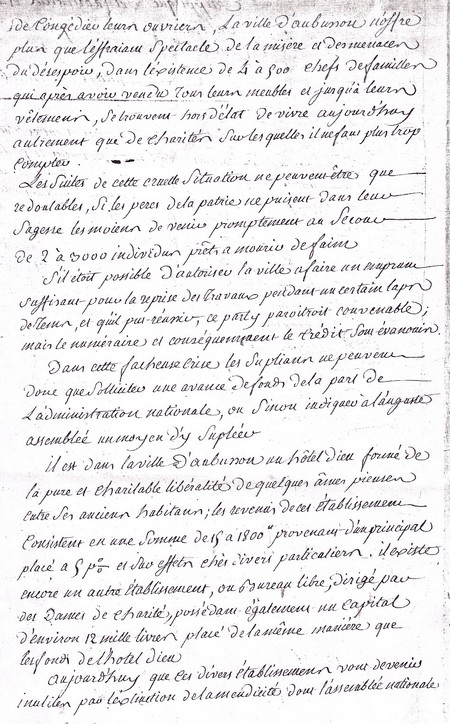 de Congédier leurs ouvriers, La ville d'aubusson n'offre
plus que l'effraiant Spectacle de la misère et des menaces
du désespoir, dans l'existence de 4 à 500 chefs de familles
qui après avoir vendu Tous leurs meubles et jusqu'à leurs
vêtemens, Se trouvent hors d'état de vivre aujourd'huy
autrement que de charités Sur lesquelles il ne faut plus trop
compter.
Les Suites de cette cruelle Situation ne peuvent être que
redoutables, Si les peres de la patrie ne puisent dans leur
Sagesse les moiens de venir promptement au Secours
de 2 à 3000 individus prêts a mourir de faim
S'il étoit possible d'autoriser la ville a faire un emprunt
suffisant pour la reprise des Travaux pendant un certain laps
de Tems, et qu'il put réussir, ce party paroitroit convenable;
mais le numéraire et conséquemment le Crédit Sont évanouis.
Dans cette facheuse Crise les Suplians ne peuvent
donc que Solliciter une avance de fonds de la part de
L'administration nationale, ou Sinon indiquer a l'auguste
assemblée un moyen d'y Supléer
il est dans la ville d'aubusson un hôtel dieu formé de
la pure et charitable libéralité de quelques âmes pieuses
entre Ses anciens habitans; les revenus de cet Etablissement
Consistent en une Somme de 15 à 1800ᵗᵗ provenant d'un principal
placé a 5 p% et Sur effets chés divers particuliers. il existe
encore un autre Etablissement, ou bureau libre, dirigé par
des Dames de Charité, possédant également un Capital
d'environ 12 mille livres placé de la même manière que
les fonds de l'hotel dieu
aujourd'huy que Ces divers établissemens vont devenir
inutiles par l'extinction de la mendicité dont l'assemblée nationale